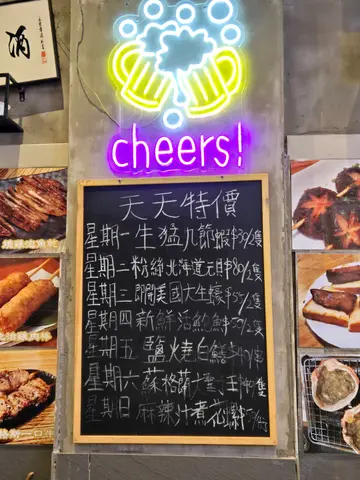 酒
cheers!
天天特價
星期一生猛九節蝦$39/隻
星期二粉絲北海道元貝$80/2隻
星期三即開美國大生蠔$55/2隻
星期四新鮮活鮑魚$59/2隻
星期五鹽燒白鱔
星期六蘇格蘭大蟶王
星期日麻辣汁煮花螺